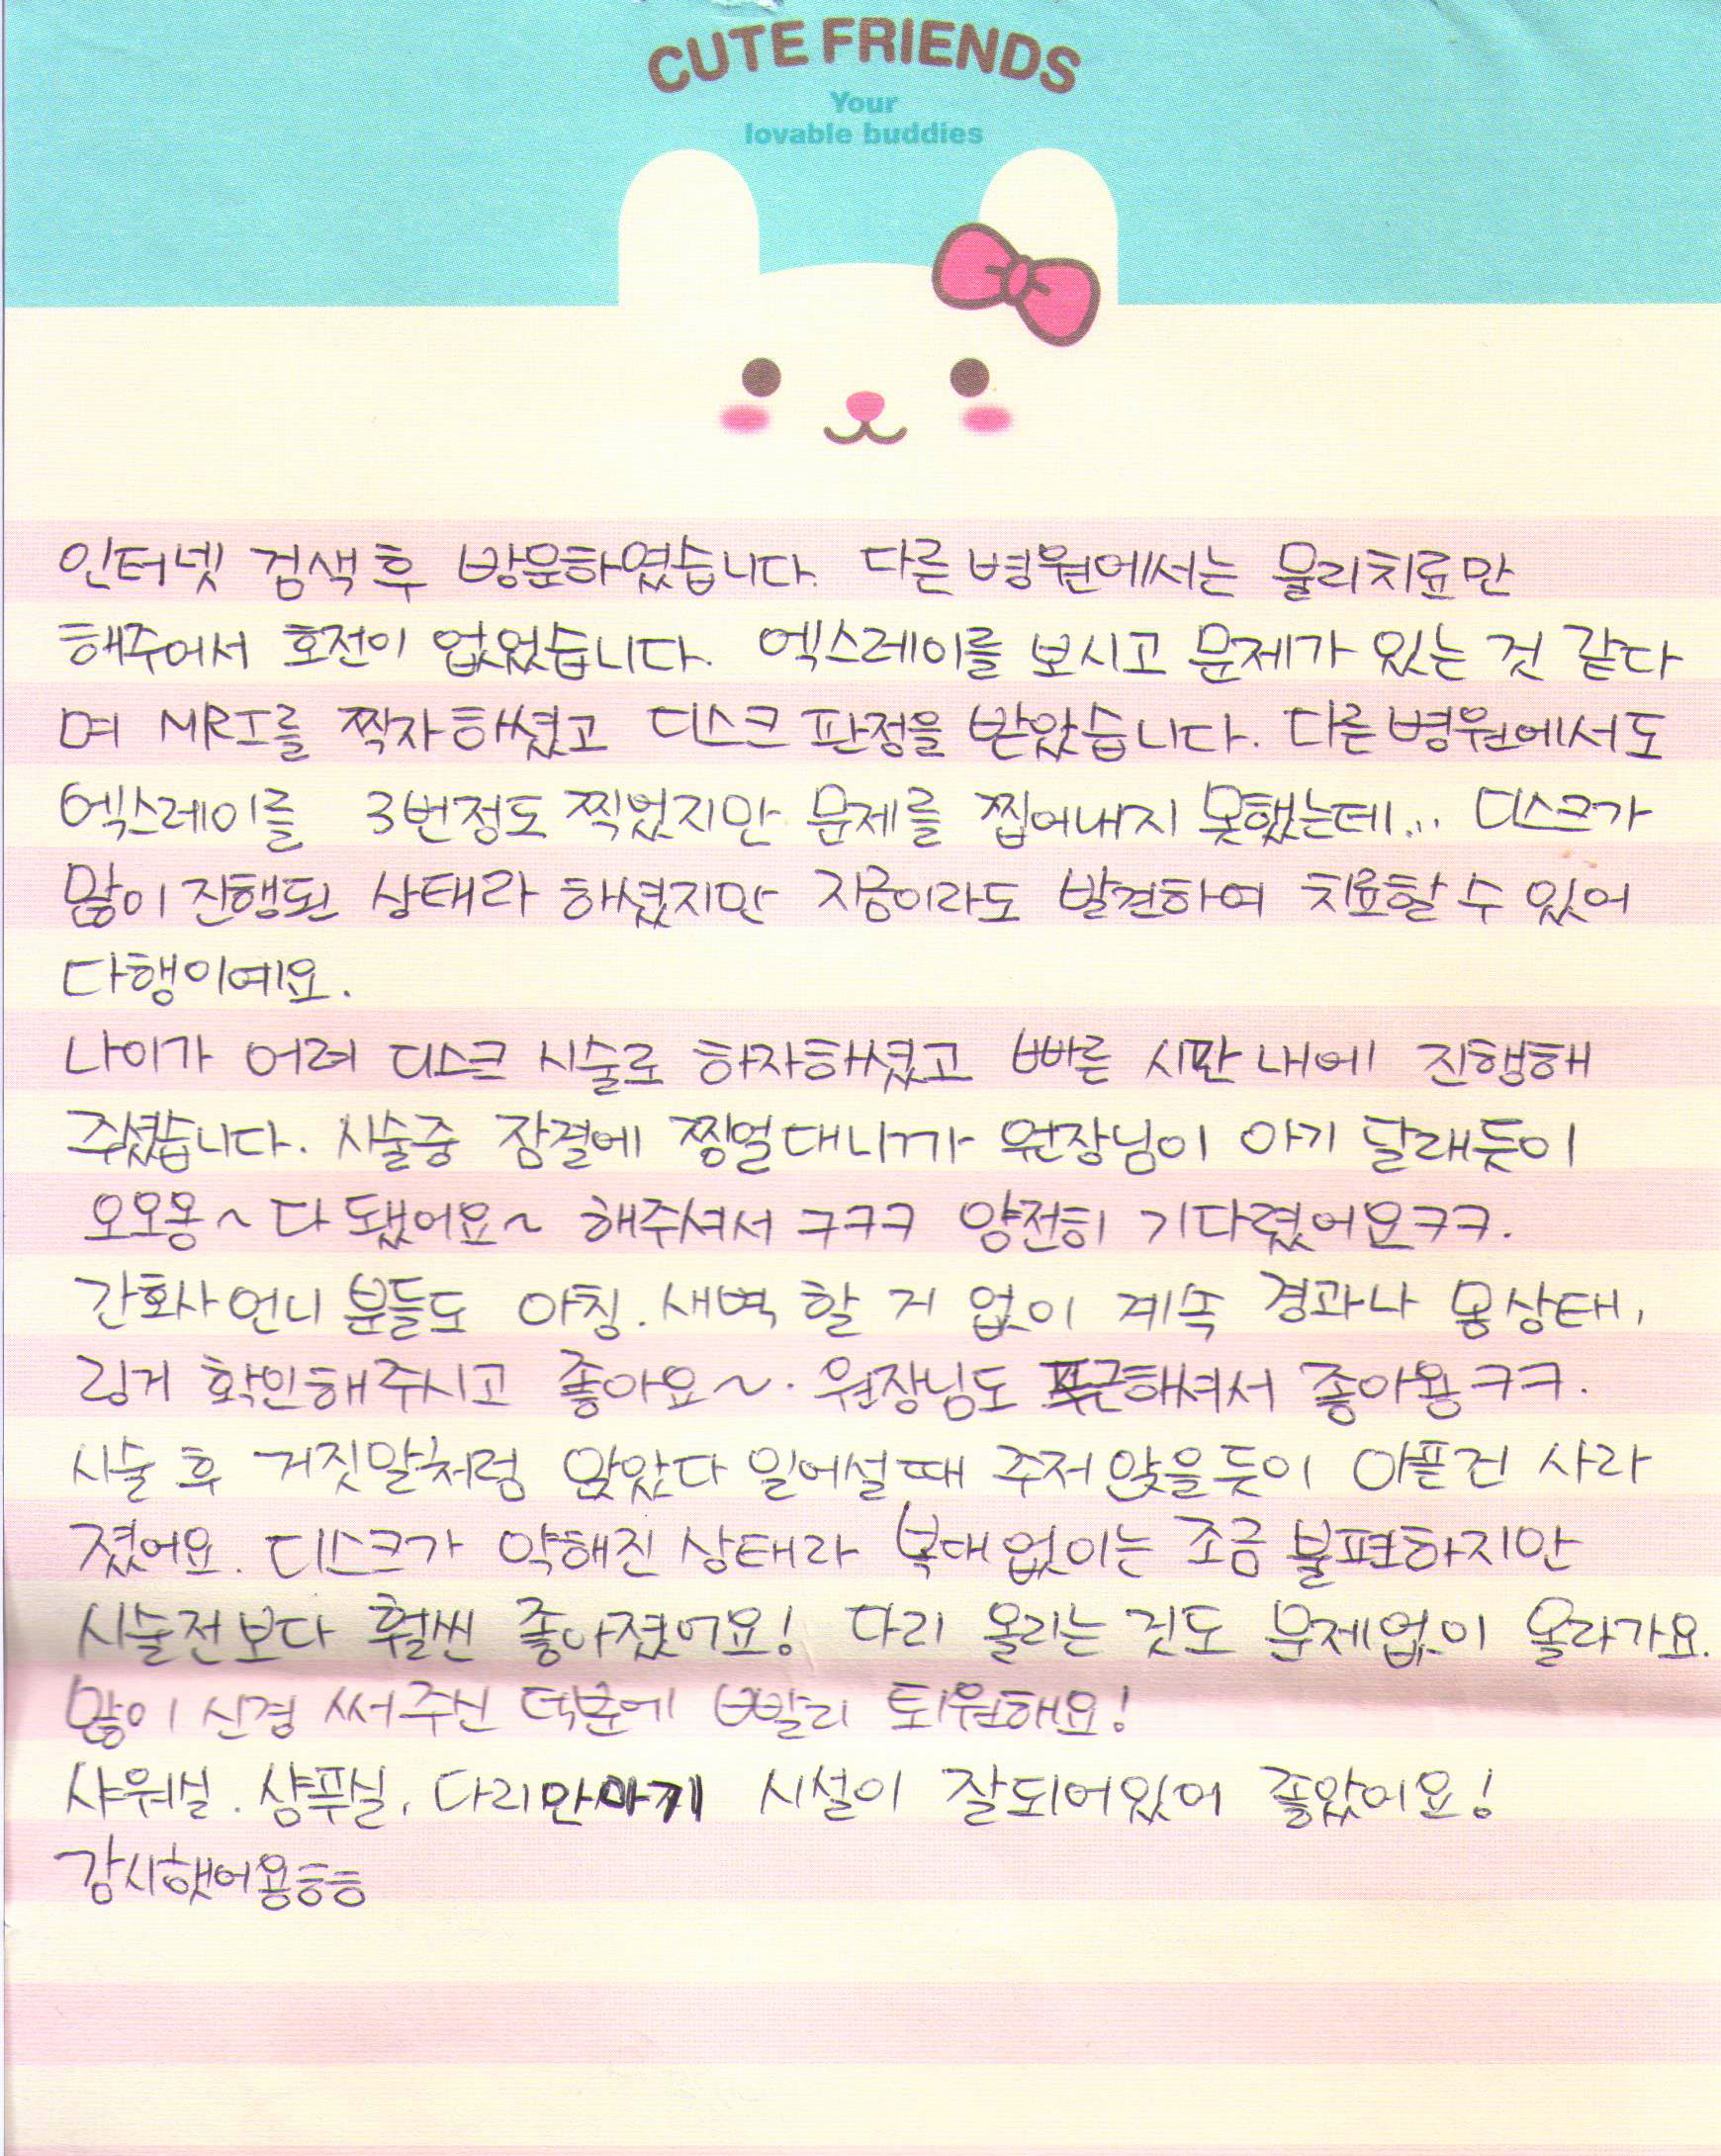 CUTE FRIENDS
Your
lovable buddies
인터넷 검색 후 방문하였습니다. 다른 병원에서는 물리치료만
해주어서 호전이 없었습니다. 엑스레이를 보시고 문제가 있는 것 같다
며 MRI를 찍자 하셨고 디스크 판정을 받았습니다. 다른 병원에서도
엑스레이를 3번정도 찍었지만 문제를 찝어내지 못했는데... 디스크가
많이 진행된 상태라 하셨지만 지금이라도 발견하여 치료할 수 있어
다행이예요.
나이가 어려 디스크 시술로 하자하셨고 빠른 시간 내에 진행해
주셨습니다. 시술중 잠결에 찡얼대니까 원장님이 아기 달래듯이
오오옹~ 다 됐어요~ 해주셔서 ㅋㅋㅋ 얌전히 기다렸어요ㅋㅋ.
간호사 언니 분들도 아침. 새벽 할 거 없이 계속 경과나 몸상태,
링거 확인해주시고 좋아요~. 원장님도 푸근해셔서 좋아용ㅋㅋ.
시술 후 거짓말처럼 앉았다 일어설때 주저앉을듯이 아픈건 사라
졌어요. 디스크가 약해진 상태라 복대없이는 조금 불편하지만
시술전보다 훨씬 좋아졌어요! 다리 올리는 것도 문제없이 올라가요.
많이 신경 써주신 덕분에 빨리 퇴원해요!
샤워실. 샴푸실, 다리안마기 시설이 잘되어있어 좋았어요!
감사했어용ㅎㅎ